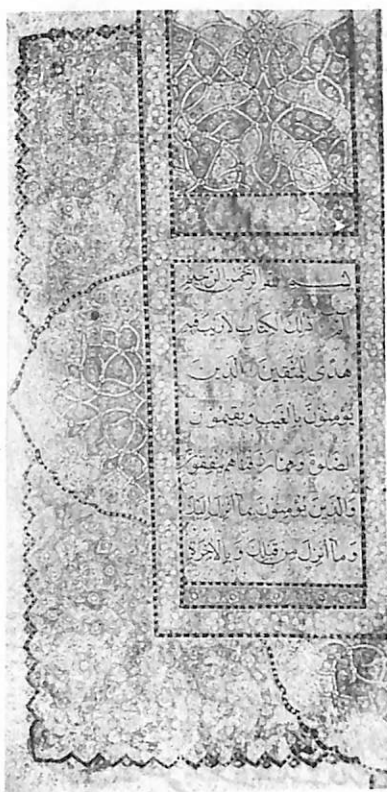 بسم الله الرحمن الرحيم
الم ذلك الكتاب لا ريب فيه
هدى للمتقين الذين
يؤمنون بالغيب ويقيمون
الصلوة ومما رزقناهم ينفقون
والذين يؤمنون بما انزل اليك
وما انزل من قبلك وبالآخرة